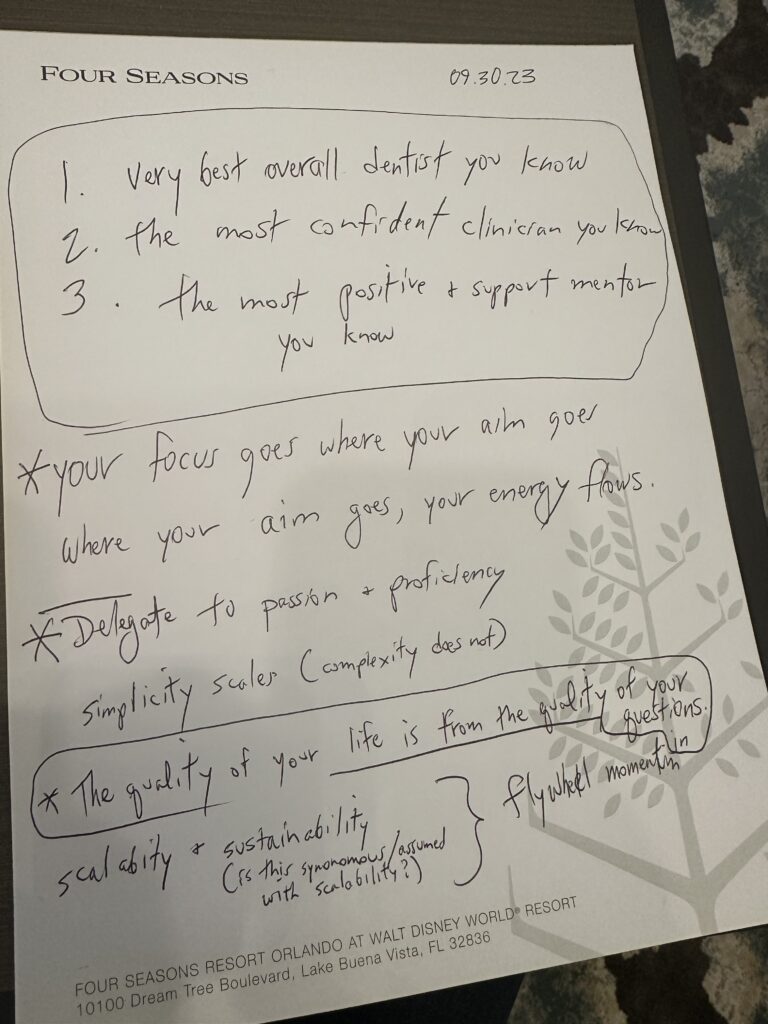 FOUR SEASONS
09.30.23
1. Very best overall dentist you know
2. the most confident clinician you know
3. the most positive + support mentor
you know
* your focus goes where your aim goes
where your aim goes, your energy flows.
* Delegate to passion + proficiency
simplicity scales (complexity does not)
* The quality of your life is from the quality of your
questions.
scalabity + sustainability
(is this synonomous/assumed
with scalability?)
} flywheel momentum in
FOUR SEASONS RESORT ORLANDO AT WALT DISNEY WORLD® RESORT
10100 Dream Tree Boulevard, Lake Buena Vista, FL 32836